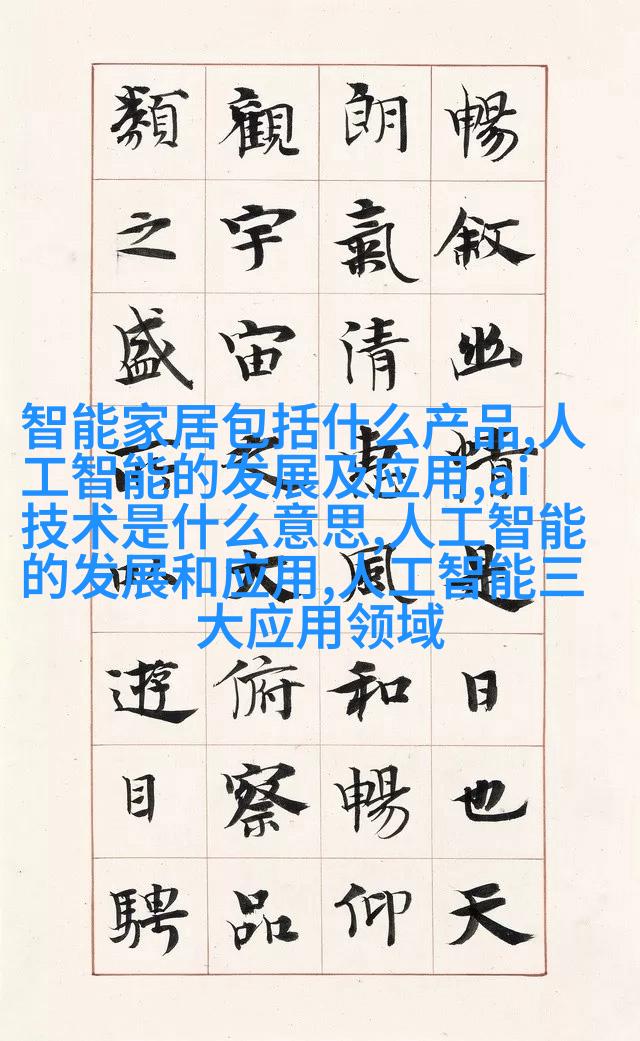 暢敘幽情是日也天
朗氣清惠風和暢仰
觀宇宙之大俯察品
類之盛所以遊目騁
智能家居包括什么产品,人
工智能的发展及应用,ai
技术是什么意思,人工智能
的发展和应用,人工智能三
大应用领域